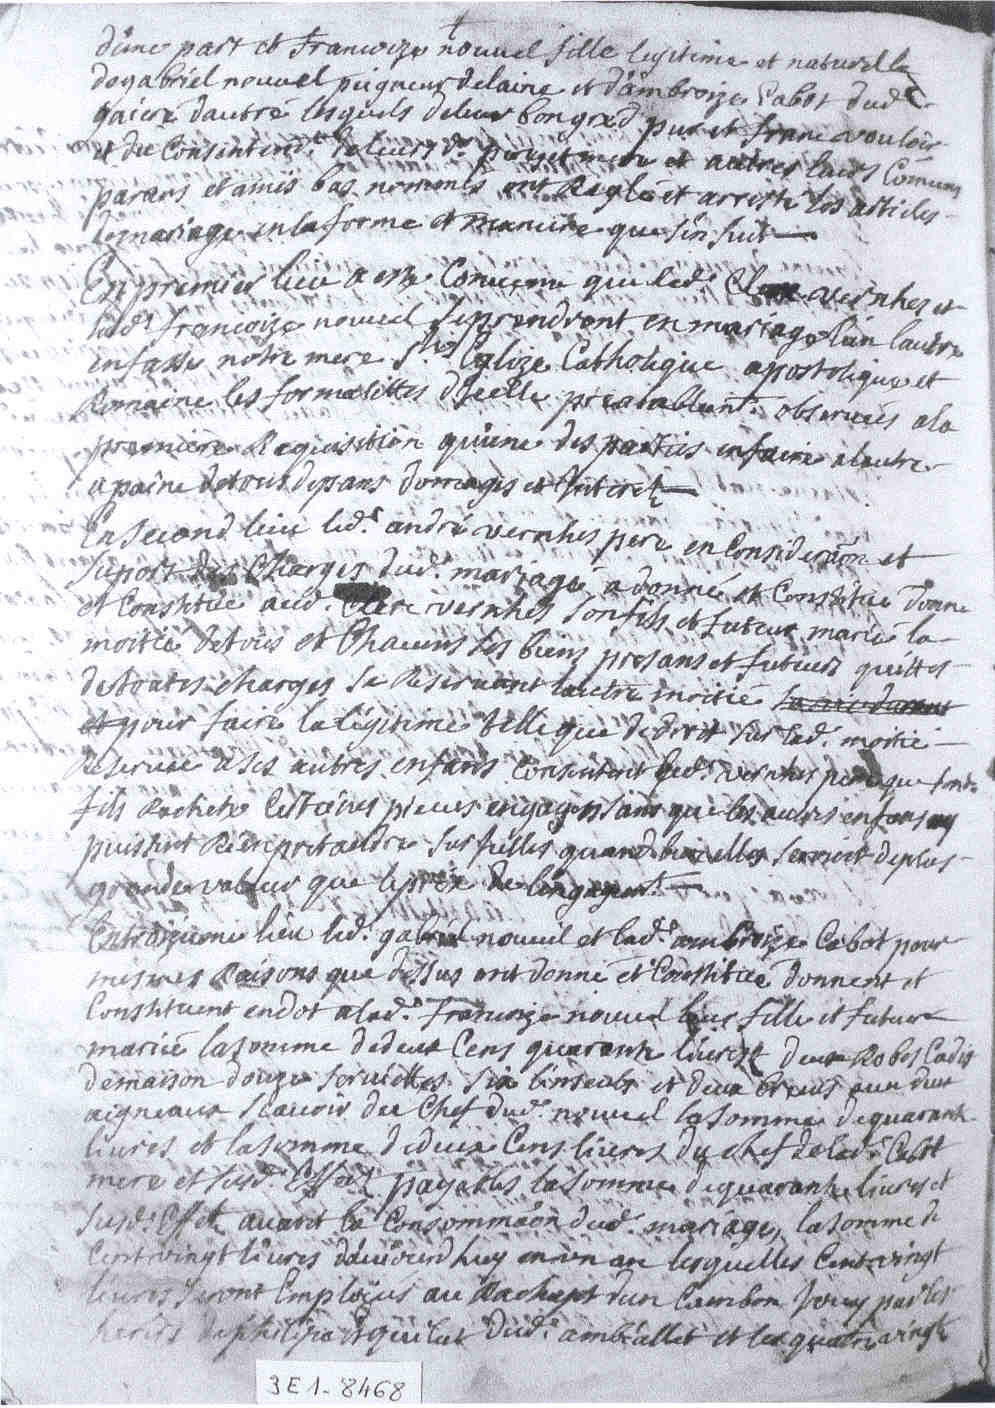 d'une part et francoize nouvel fille legitime et naturelle
de gabriel nouvel peigneur de laine et d'ambroize Cabot dud.
d'autre lesquels de leur bon gred pur et franc vouloir
et du Consentem.t de leurs d. pere et mere et autres leurs Comuns
parans et amis bas nommés ont Reglé et arresté les articles
de mariage en la forme et maniere que s'en suit
En premier lieu a esté Convenu que led. vernhes et
lad. francoize nouvel se prendront en mariage l'un l'autre
en fasse notre mere S.te Eglize Catholique apostolique et
Romaine les formalittes d'Icelle prealablem.t observées a la
premiere Requisition qu'une des parties en faira a l'autre
a paine de tous depans domages et Interets
En second lieu led.t andré vernhes pere en Consideraon et
suport des Charges dud. mariage a donné et Constitué donne
et Constitue aud. vernhes son fils et futeur marié la
moitié de tous et Chacuns ses biens presans et futeurs quittes
de toutes charges se Reservant l'autre moitié
et pour faire la légitime telle que de droit sur lad. moitié
Reservée a ses autres enfans Consentent led. vernhes pere que sond.
fils Rachete Certaines pieces engagés sans que les autres enfans
puissent Rien pretendre sur Icelles quand bien elles seroint de plus
grande valeur que le prix de l'engagem.t
En troizieme lieu led. gabriel nouvel et lad. ambroize Cabot pour
mesmes Raisons que dessus ont donné et Constitué donnent et
Constituent en dot a lad. francoize nouvel leur fille et future
mariée la somme de deux Cens quarante livres deux Robes Cadis
de maison douze serviettes six linseuls et deux brebis avec deux
aigneaux scavoir du Chef dud. nouvel la somme de quarante
livres et la somme de deux Cens livres du chef de lad. Cabot
mere et susd. Effets payables la somme de quarante livres et
susd. Effets avant la Consommaon dud. mariage, la somme de
Cent vingt livres d'aujourd'huy en un an lesquelles Cent vingt
livres seront Employées au Rachapt d'un par les
heritiers de philipe dud. ambiallet et les quatre vingts
3 E 1 - 8468